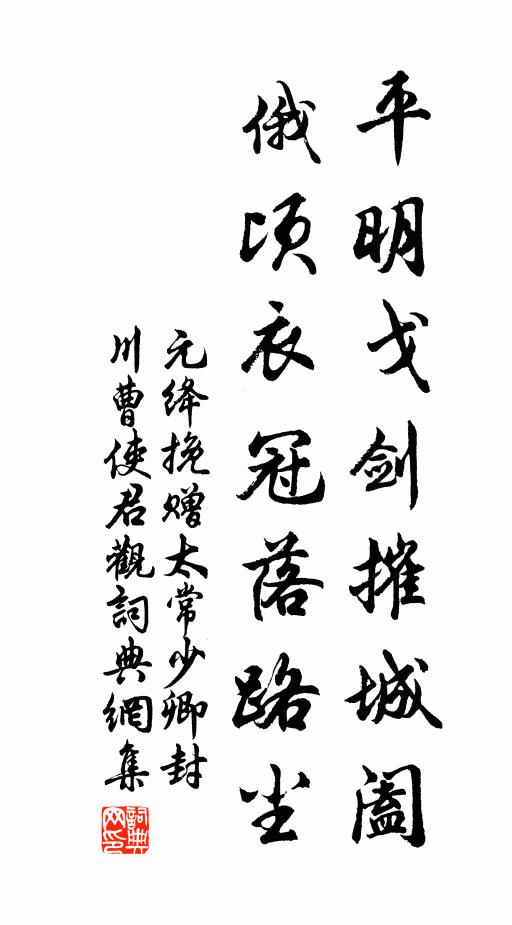 平明戈剑摧城阖
俄顷衣冠落路尘
元绛挽赠太常少卿封
川曹使君觀詞典網集
詞典
网印